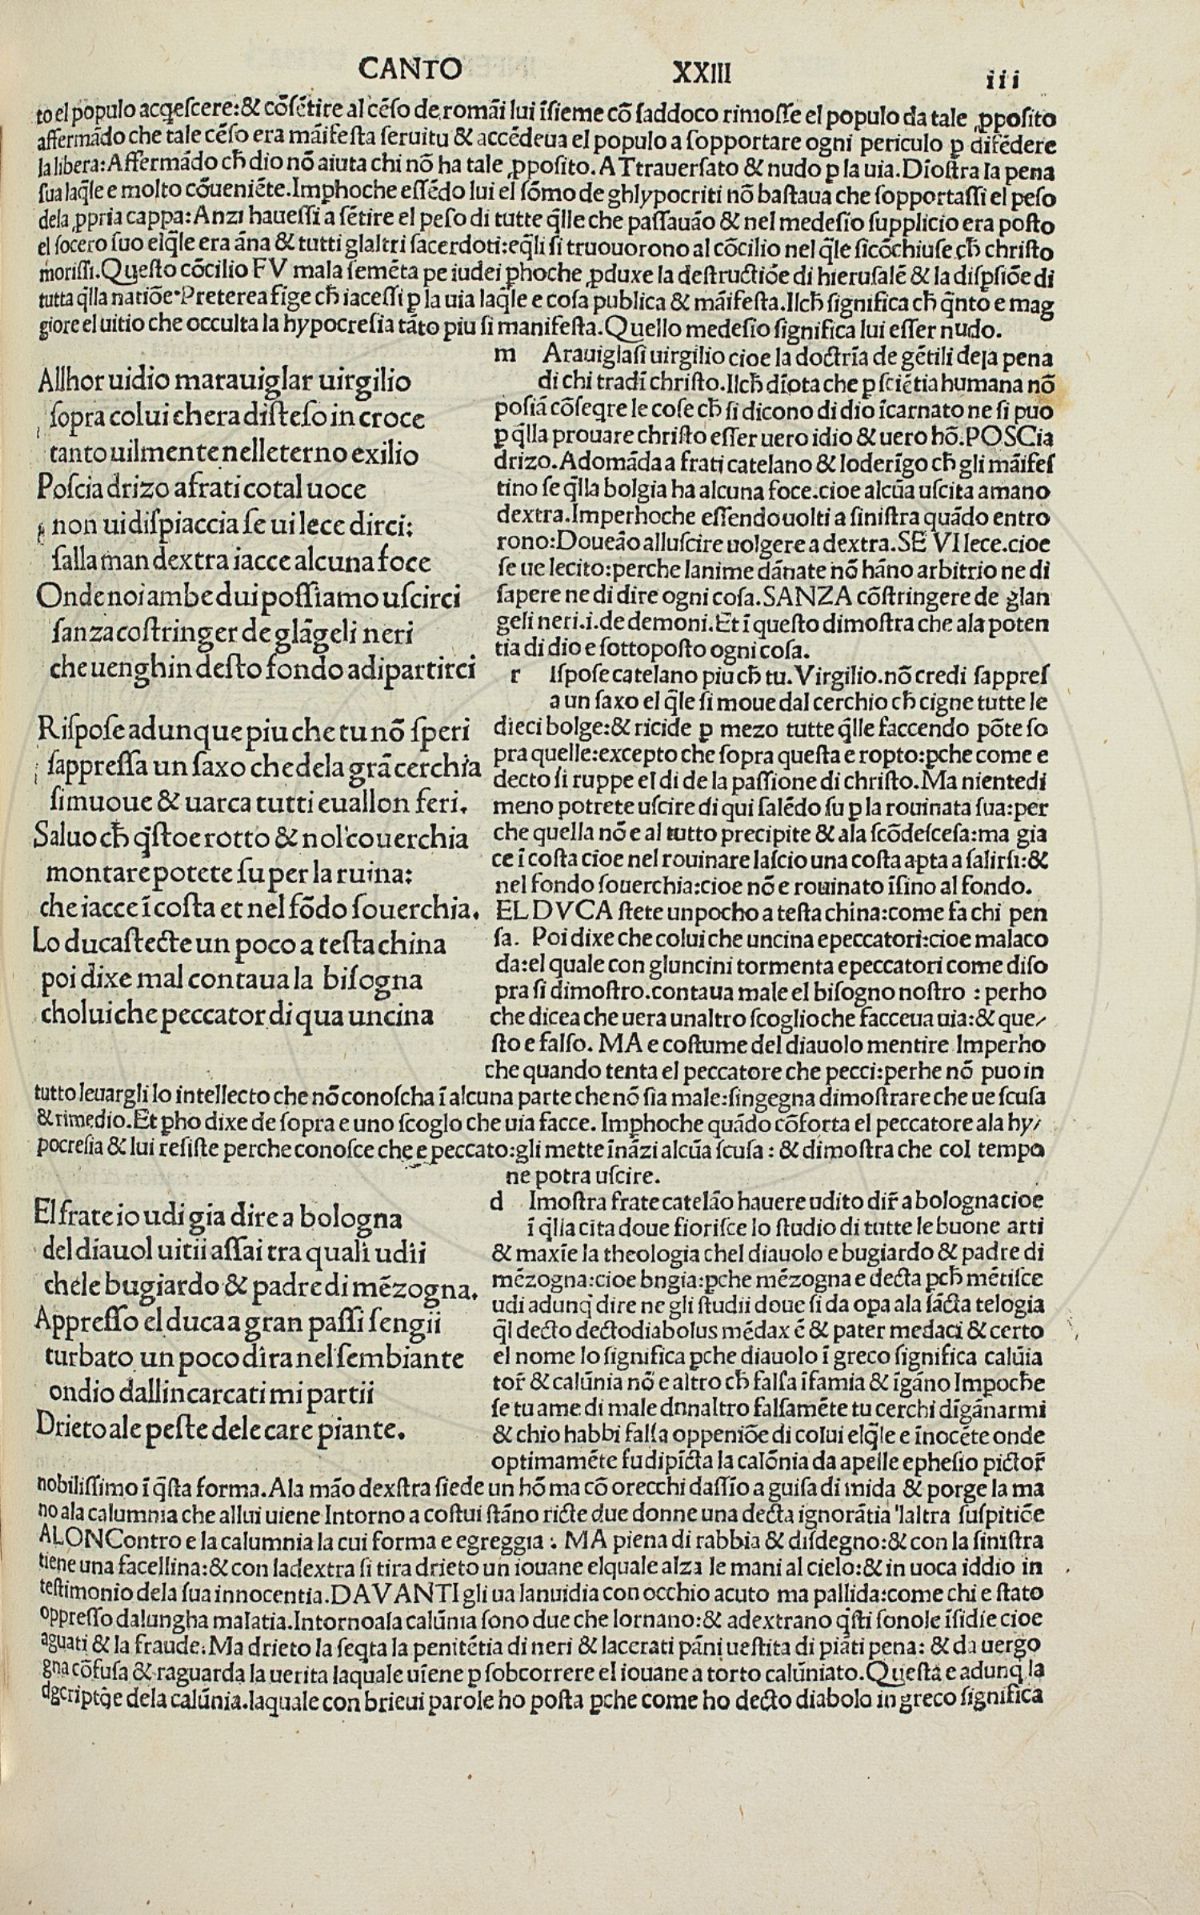 CANTO XXIII iii
to el populo acq̃escere:& cõsẽtire al cẽso de romãi lui ĩsieme cõ saddoco rimosse el populo da tale ꝓposito
affermãdo che tale cẽso era mãifesta seruitu & accẽdeua el populo a sopportare ogni periculo ꝑ difẽdere
la libera:Affermãdo ch̃ dio nõ aiuta chi nõ ha tale ꝓposito. ATtrauersato & nudo ꝑ la uia. Dĩostra la pena
sua laq̃le e molto cõueniẽte.Imphoche essẽdo lui el sõmo de ghlypocriti nõ bastaua che sopportassi el peso
dela ꝓpria cappa:Anzi hauessi a sẽtire el peso di tutte q̃lle che passauão & nel medesio supplicio era posto
el socero suo elq̃le era ãna & tutti glaltri sacerdoti:eq̃li si truouorono al cõcilio nel q̃le sicõchiuse ch̃ christo
morissi.Questo cõcilio FV mala semẽta pe iudei ꝑhoche ꝓduxe la destructiõe di hierusalẽ & la dispsiõe di
tutta q̃lla natiõe.Preterea fĩge ch̃ iacessi ꝑ la uia laq̃le e cosa publica & mãifesta.Ilch̃ significa ch̃ q̃nto e mag
giore el uitio che occulta la hypocresia tãto piu si manifesta.Quello medesio significa lui esser nudo.
Allhor uidio marauiglar uirgilio
sopra colui chera disteso in croce
tanto uilmente nelleterno exilio
Poscia drizo a frati cotal uoce
non ui dispiaccia se ui lece dirci:
salla man dextra iacce alcuna foce
Onde noi ambedui possiamo uscirci
sanza costringer de glãgeli neri
che uenghin desto fondo adipartirci
m Arauiglasi uirgilio cioe la doctrĩa de gẽtili dela pena
di chi tradi christo.Ilch̃ dĩota che ꝑ sciẽtia humana nõ
posiã cõseqre le cose ch̃ si dicono di dio ĩcarnato ne si puo
ꝑ q̃lla prouare christo esser uero idio & uero hõ.POSCia
drizo.Adomãda a frati catelano & loderĩgo ch̃ gli mãifes
tino se q̃lla bolgia ha alcuna foce.cioe alcũa uscita amano
dextra.Imperhoche essendo uolti a sinistra quãdo entro
rono:Doueão alluscire uolgere a dextra.SE VI lece.cioe
se ue lecito:perche lanime dãnate nõ hãno arbitrio ne di
sapere ne di dire ogni cosa.SANZA cõstringere de glan
geli neri.i.de demoni.Et ĩ questo dimostra che ala poten
tia di dio e sottoposto ogni cosa.
Rispose adunque piu che tu nõ speri
sappressa un saxo che dela grã cerchia
si muoue & uarca tutti euallon feri.
Saluo ch̃ q̃sto e rotto & nol couerchia
montare potete su per la ruina:
che iacce ĩ costa et nel fõdo souerchia.
Lo duca stecte un poco a testa china
poi dixe mal contaua la bisogna
cholui che peccator di qua uncina
r Ispose catelano piu ch̃ tu.Virgilio.nõ credi sappres
a un saxo el q̃le si moue dal cerchio ch̃ cigne tutte le
dieci bolge:& ricide ꝑ mezo tutte q̃lle faccendo põte so
pra quelle:excepto che sopra questa e ropto:ꝑche come e
decto si ruppe el di de la passione di christo.Ma nientedi
meno potrete uscire di qui salẽdo su ꝑ la rouinata sua:per
che quella nõ e al tutto precipite & ala scõdescesa:ma gia
ce ĩ costa cioe nel rouinare lascio una costa apta a salirsi:&
nel fondo souerchia:cioe nõ e rouinato ĩsino al fondo.
EL DVCA stete un pocho a testa china:come fa chi pen
sa. Poi dixe che colui che uncina epeccatori:cioe malaco
da:el quale con gluncini tormenta epeccatori come diso
pra si dimostro.contaua male el bisogno nostro : perho
che dicea che uera unaltro scoglio che facceua uia:& que/
sto e falso. MA e costume del diauolo mentire Imperho
che quando tenta el peccatore che pecci:perhe nõ puo in
tutto leuargli lo intellecto che nõ conoscha ĩ alcuna parte che nõ sia male:singegna dimostrare che ue scusa
& rimedio.Et pho dixe de sopra e uno scoglo che uia facce. Imꝑhoche quãdo cõforta el peccatore ala hy/
pocresia & lui resiste perche conosce che e peccato:gli mette ĩnãzi alcũa scusa : & dimostra che col tempo
ne potra uscire.
El frate io udi gia dire a bologna
del diauol uitii assai tra quali udii
chele bugiardo & padre di mẽzogna.
Appresso el duca a gran passi sengii
turbato un poco dira nel sembiante
ondio dallincarcati mi partii
Drieto ale peste dele care piante.
d Imostra frate catelão hauere udito dir̃ a bologna cioe
ĩ q̃lla cita doue fiorisce lo studio di tutte le buone arti
& maxĩe la theologia chel diauolo e bugiardo & padre di
mẽzogna:cioe bngia:ꝑche mẽzogna e decta ꝑch̃ mẽtisce
udi adunq̃ dire ne gli studii doue si da opa ala sãcta telogia
q̃l decto dectodiabolus mẽdax ẽ & pater medaci & certo
el nome lo significa ꝑche diauolo ĩ greco significa calũia
tor̃ & calũnia nõ e altro ch̃ falsa ĩfamia & ĩgãno Impoch̃e
se tu ame di male dnnaltro falsamẽte tu cerchi dĩgãnarmi
& chio habbi falsa oppeniõe di colui elq̃le e ĩnocẽte onde
optimamẽte fu dipĩcta la calõnia da apelle ephesio pictor̃
nobilissimo ĩ q̃sta forma.Ala mão dexstra siede un hõ ma cõ orecchi dassĩo a guisa di mida & porge la ma
no ala calumnia che allui uiene Intorno a costui stãno ricte due donne una decta ignorãtia laltra suspitiõe
ALONContro e la calumnia la cui forma e egreggia : MA piena di rabbia & disdegno:& con la sinistra
tiene una facellina:& con ladextra si tira drieto un iouane elquale alza le mani al cielo:& in uoca iddio in
testimonio dela sua innocentia.DAVANTI gli ua lanuidia con occhio acuto ma pallida:come chi e stato
oppresso dalungha malatia.Intornoala calũnia sono due che lornano:& adextrano q̃sti sonole ĩsidie cioe
aguati & la fraude.Ma drieto la seq̃ta la penitẽtia di neri & lacerati pãni uestita di piãti pena: & da uergo
gna cõfusa & raguarda la uerita laquale uiene ꝑ sobcorrere el iouane a torto calũniato.Questa e adunq̃ la
dgcriptõe dela calũnia.laquale con brieui parole ho posta ꝑche come ho decto diabolo in greco significa